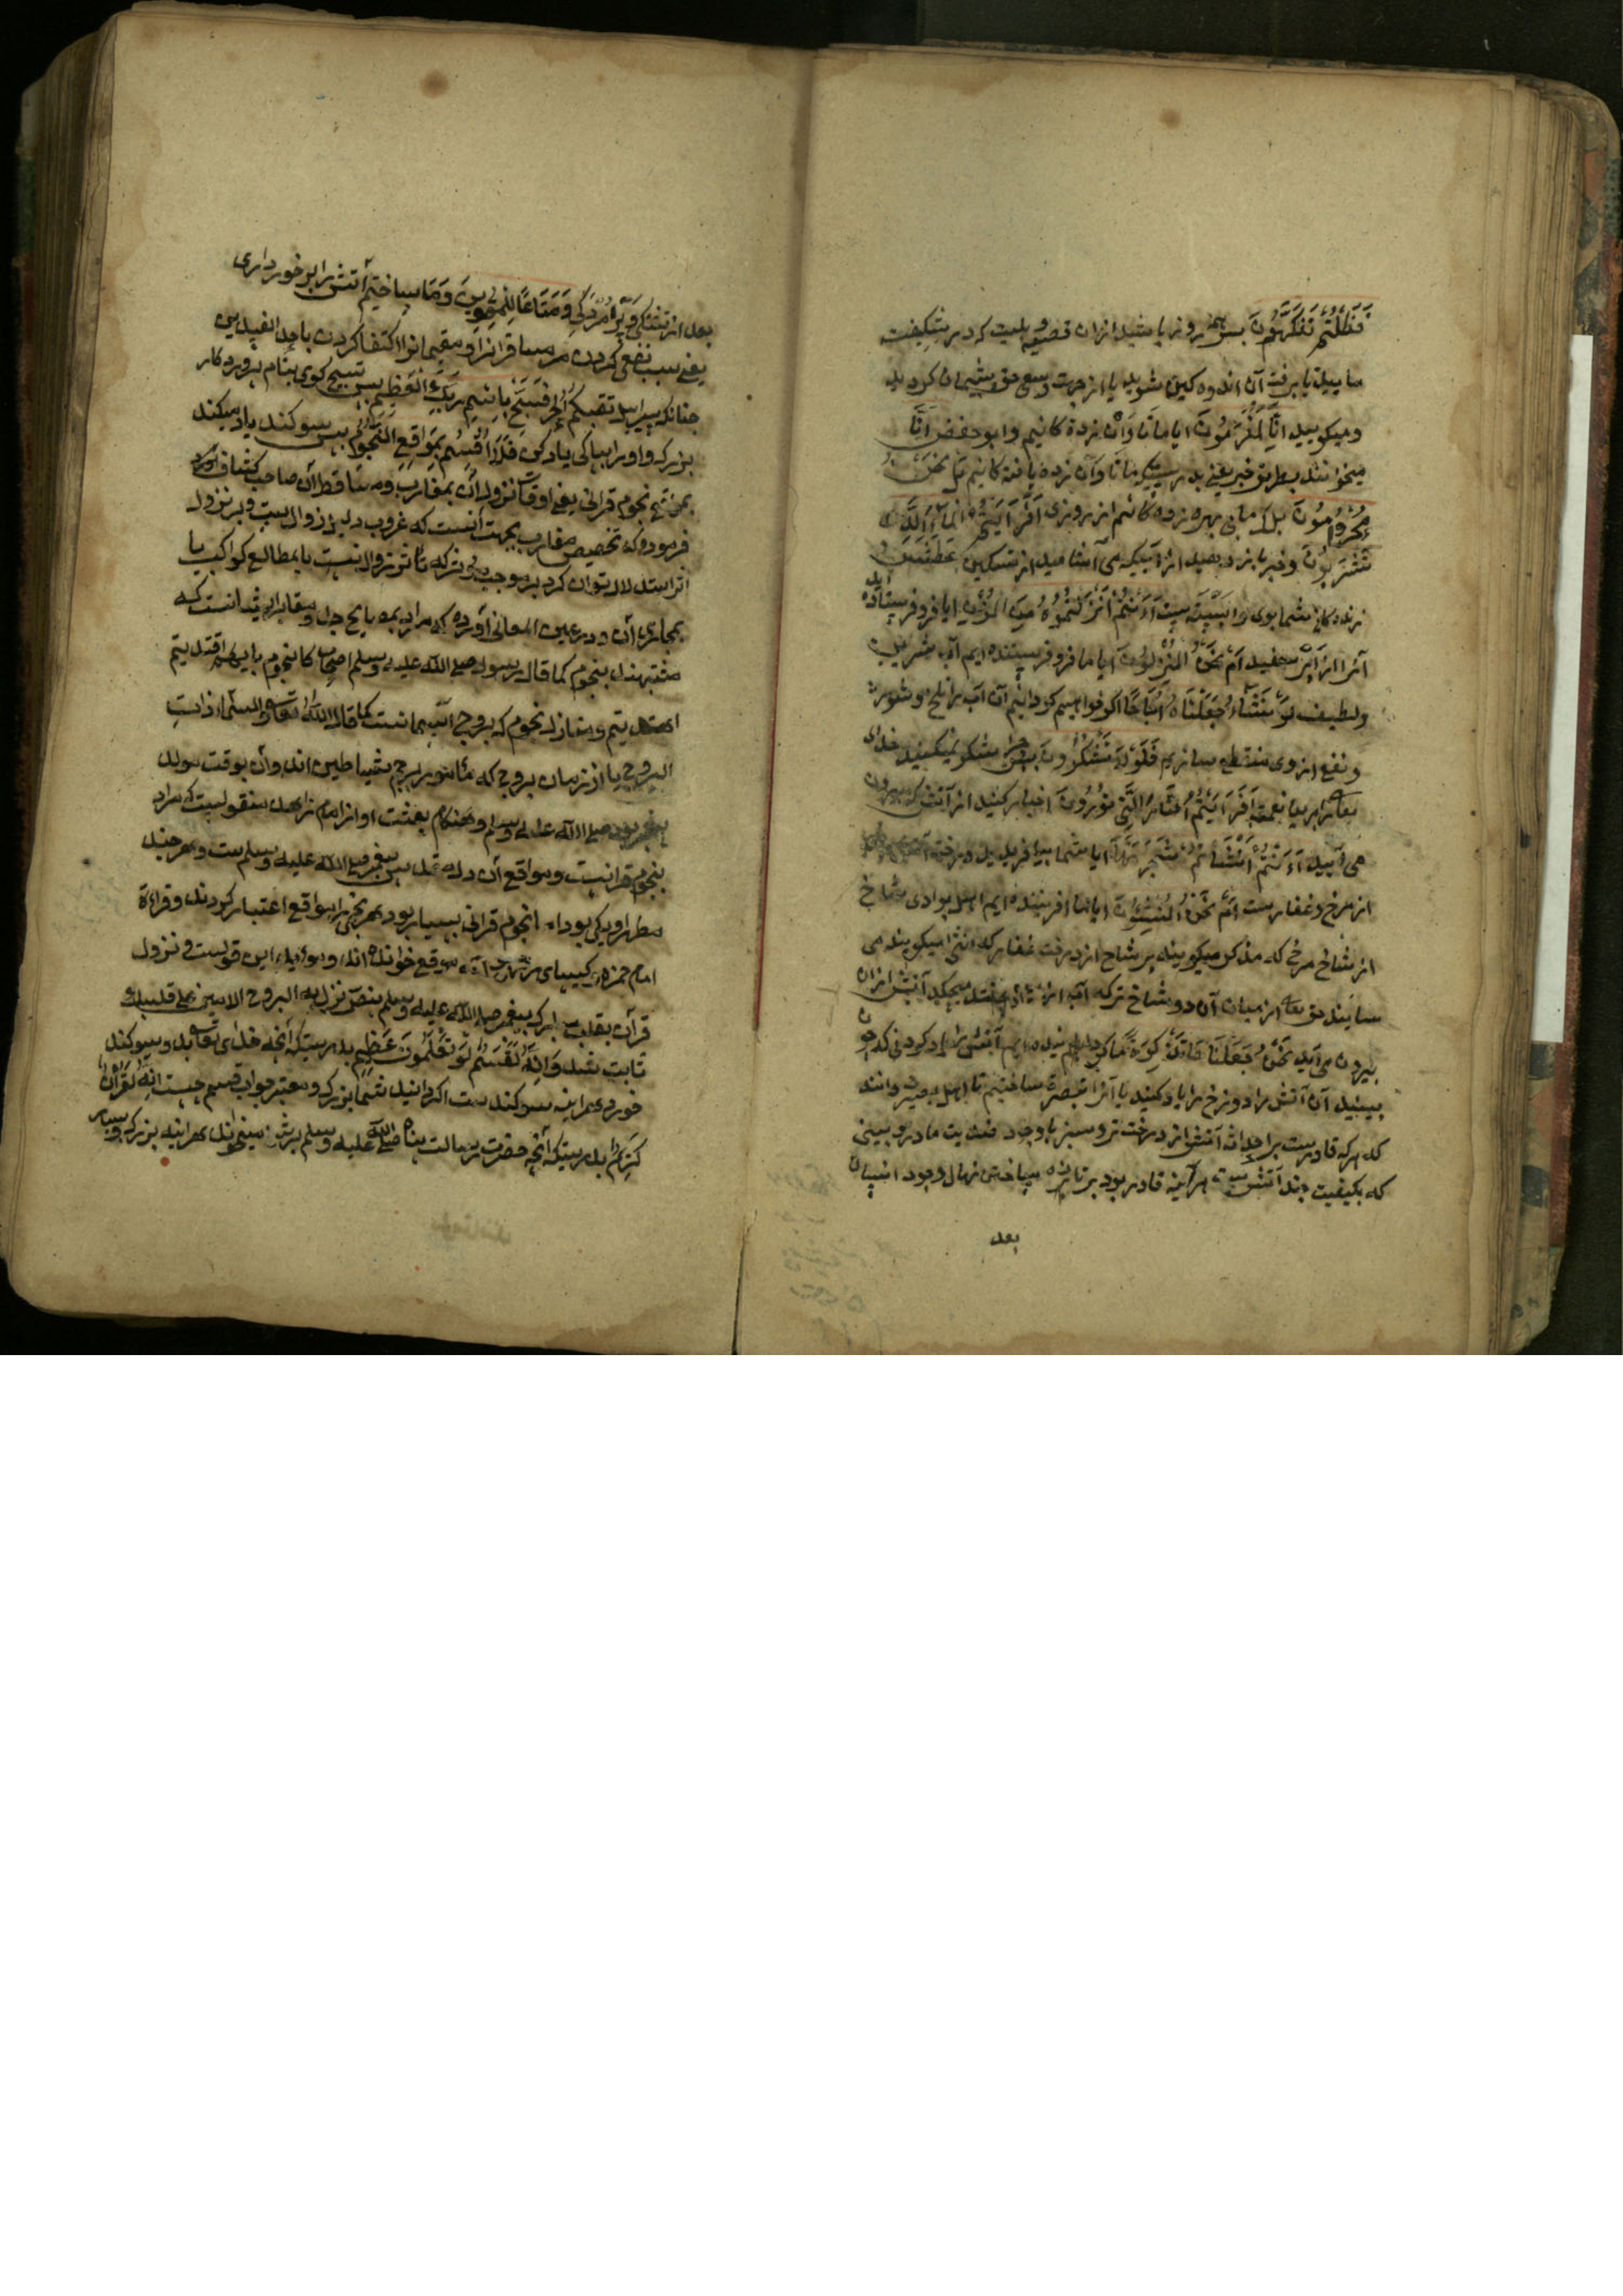 فَظَلْتُمْ تَفَكَّهُونَ پس همه روز باشید ازان قصیه بلیت که در شکفت
ما بید یا برفت آن اندوه کین شوید یا از جهت وسع حق پشیمان کردید
و میکویید اِنَّا لَمُغْرَمُونَ ایا مانا وان زده کانیم و ابو حفض اِنَّا
میخوانند بطریق خبر یعنی بدرستیکه مانا وان زده یافته کانیم بَلْ نَحْنُ
مَحْرُومُونَ بلکه ما بی بهره زده کانیم از روزی اَفَرَاَیْتُمُ الْمَاءَ الَّذِی
تَشْرَبُونَ و خبر باز دهید از آبیکه می آشامید از تسکین عطش
زنده کانی شما بوی وابسته است ءَاَنْتُمْ اَنْزَلْتُمُوهُ مِنَ الْمُزْنِ ایا فرو فرستاده اید
آنرا از ابر سفید اَمْ نَحْنُ الْمُنْزِلُونَ ایا ما فرو فرستنده ایم آب شیرین
و لطیف لَوْ نَشَاءُ جَعَلْنَاهُ اُجَاجًا اکر خواهیم کردانیم آن آب را تلخ و شور
و نفع از وی منقطع سازیم فَلَوْلَا تَشْكُرُونَ پس چرا شکر نمیکنید خدای
تعالی را برین نعمت اَفَرَاَیْتُمُ النَّارَ الَّتِی تُورُونَ اخبار کنید از آتش که بیرون
می آرید ءَاَنْتُمْ اَنْشَاْتُمْ شَجَرَتَهَا ایا شما بیافریدید درخت آتش
از مرخ و عفار ست اَمْ نَحْنُ الْمُنْشِئُونَ ایا ما افریننده ایم اهل بوادی شاخ
از شاخ مرخ که مذکر میکویند بر شاخ از درخت عفار که انثی میکویند می
سایند حق تعالی از میان آن دو شاخ تر که آب ازیشان میچکد آتش ازان
بیرون می آید نَحْنُ جَعَلْنَاهَا تَذْكِرَةً ما کردانیده ایم آتش را یاد کردنی که چون
ببینید آن آتش را دوزخ را یاد کنید یا آنرا تبصره ساختیم تا اهل بصیرت دانند
که هرکه قادرست بر احداث آتش از درخت تر و سبز با وجود ضدیت مادر و بینی
که بکیفیت چند آتش ست هر آینه قادر بود بر تازه ساختن نهال وجود انسان
بعد
بعد از تشنکی و پژمردکی وَمَتَاعًا لِلْمُقْوِینَ و ما ساختیم آتش را برخورداری
یعنی سبب نفعی کردن مر مسافرانرا و مقیمانرا اکتفا کردن باحد الضدین
چنانکه سرابیل تقیکم الحر فَسَبِّحْ بِاسْمِ رَبِّكَ الْعَظِیمِ پس تسبیح کوی بنام پروردکار
بزرک و او را بپاکی یاد کن فَلَا اُقْسِمُ بِمَوَاقِعِ النُّجُومِ پس سوکند یاد میکند
بمواقع نجوم قرانی یعنی اوقات نزول آن بمغارب و مساقط آن صاحب کشاف
فرموده که تخصیص مغارب بجهت آنست که غروب دلیل زوال است و بر نزول
اثر استدلال توان کرد بر موجب مؤثر که تاثر زوال نیست یا بمطالع کواکب یا
بمجاری آن و در عین المعانی آورده که مراد بمصابیح جدل و مقابله شدانست که
مشتبهند بنجوم کما قال رسول صلی الله علیه وسلم اصحابی کالنجوم بایهم اقتدیتم
اهتدیتم و منازل نجوم که بروج آسمانست کما قال الله تعالی والسماء ذات
البروج یا اززمان بروج که مامور برجم شیاطین اند و آن بوقت مولد
پیغمبر بود صلی الله علیه وسلم و هنکام بعثت او و از امام زاهد منقولست که مراد
نجوم قرانست و مواقع آن دل مقدس پیغمبر صلی الله علیه وسلم ست و هر چند
مطهر او یکی بود اما نجوم قرانی بسیار بود هر نجمی را مواقع اعتبار کردند و قراءة
امام حمزه و کسیای موقع خوانده اند و مؤید این قولست و نزول
قرآن بقلب مبارک پیغمبر صلی الله علیه وسلم بنص نزل به الروح الامین علی قلبک
ثابت شد وَاِنَّهُ لَقَسَمٌ لَوْ تَعْلَمُونَ عَظِیمٌ بدرستیکه آنچه خدای تعالی بدو سوکند
خورد هر اینه سوکندست اکر دانید شما بزرک و معتبر جواب قسم چیست اِنَّهُ لَقُرْآنٌ
كَرِیمٌ بدرستیکه آنچه حضرت رسالت پناه صلی الله علیه وسلم بر شما میخواند هر اینه بزرک و بسیار